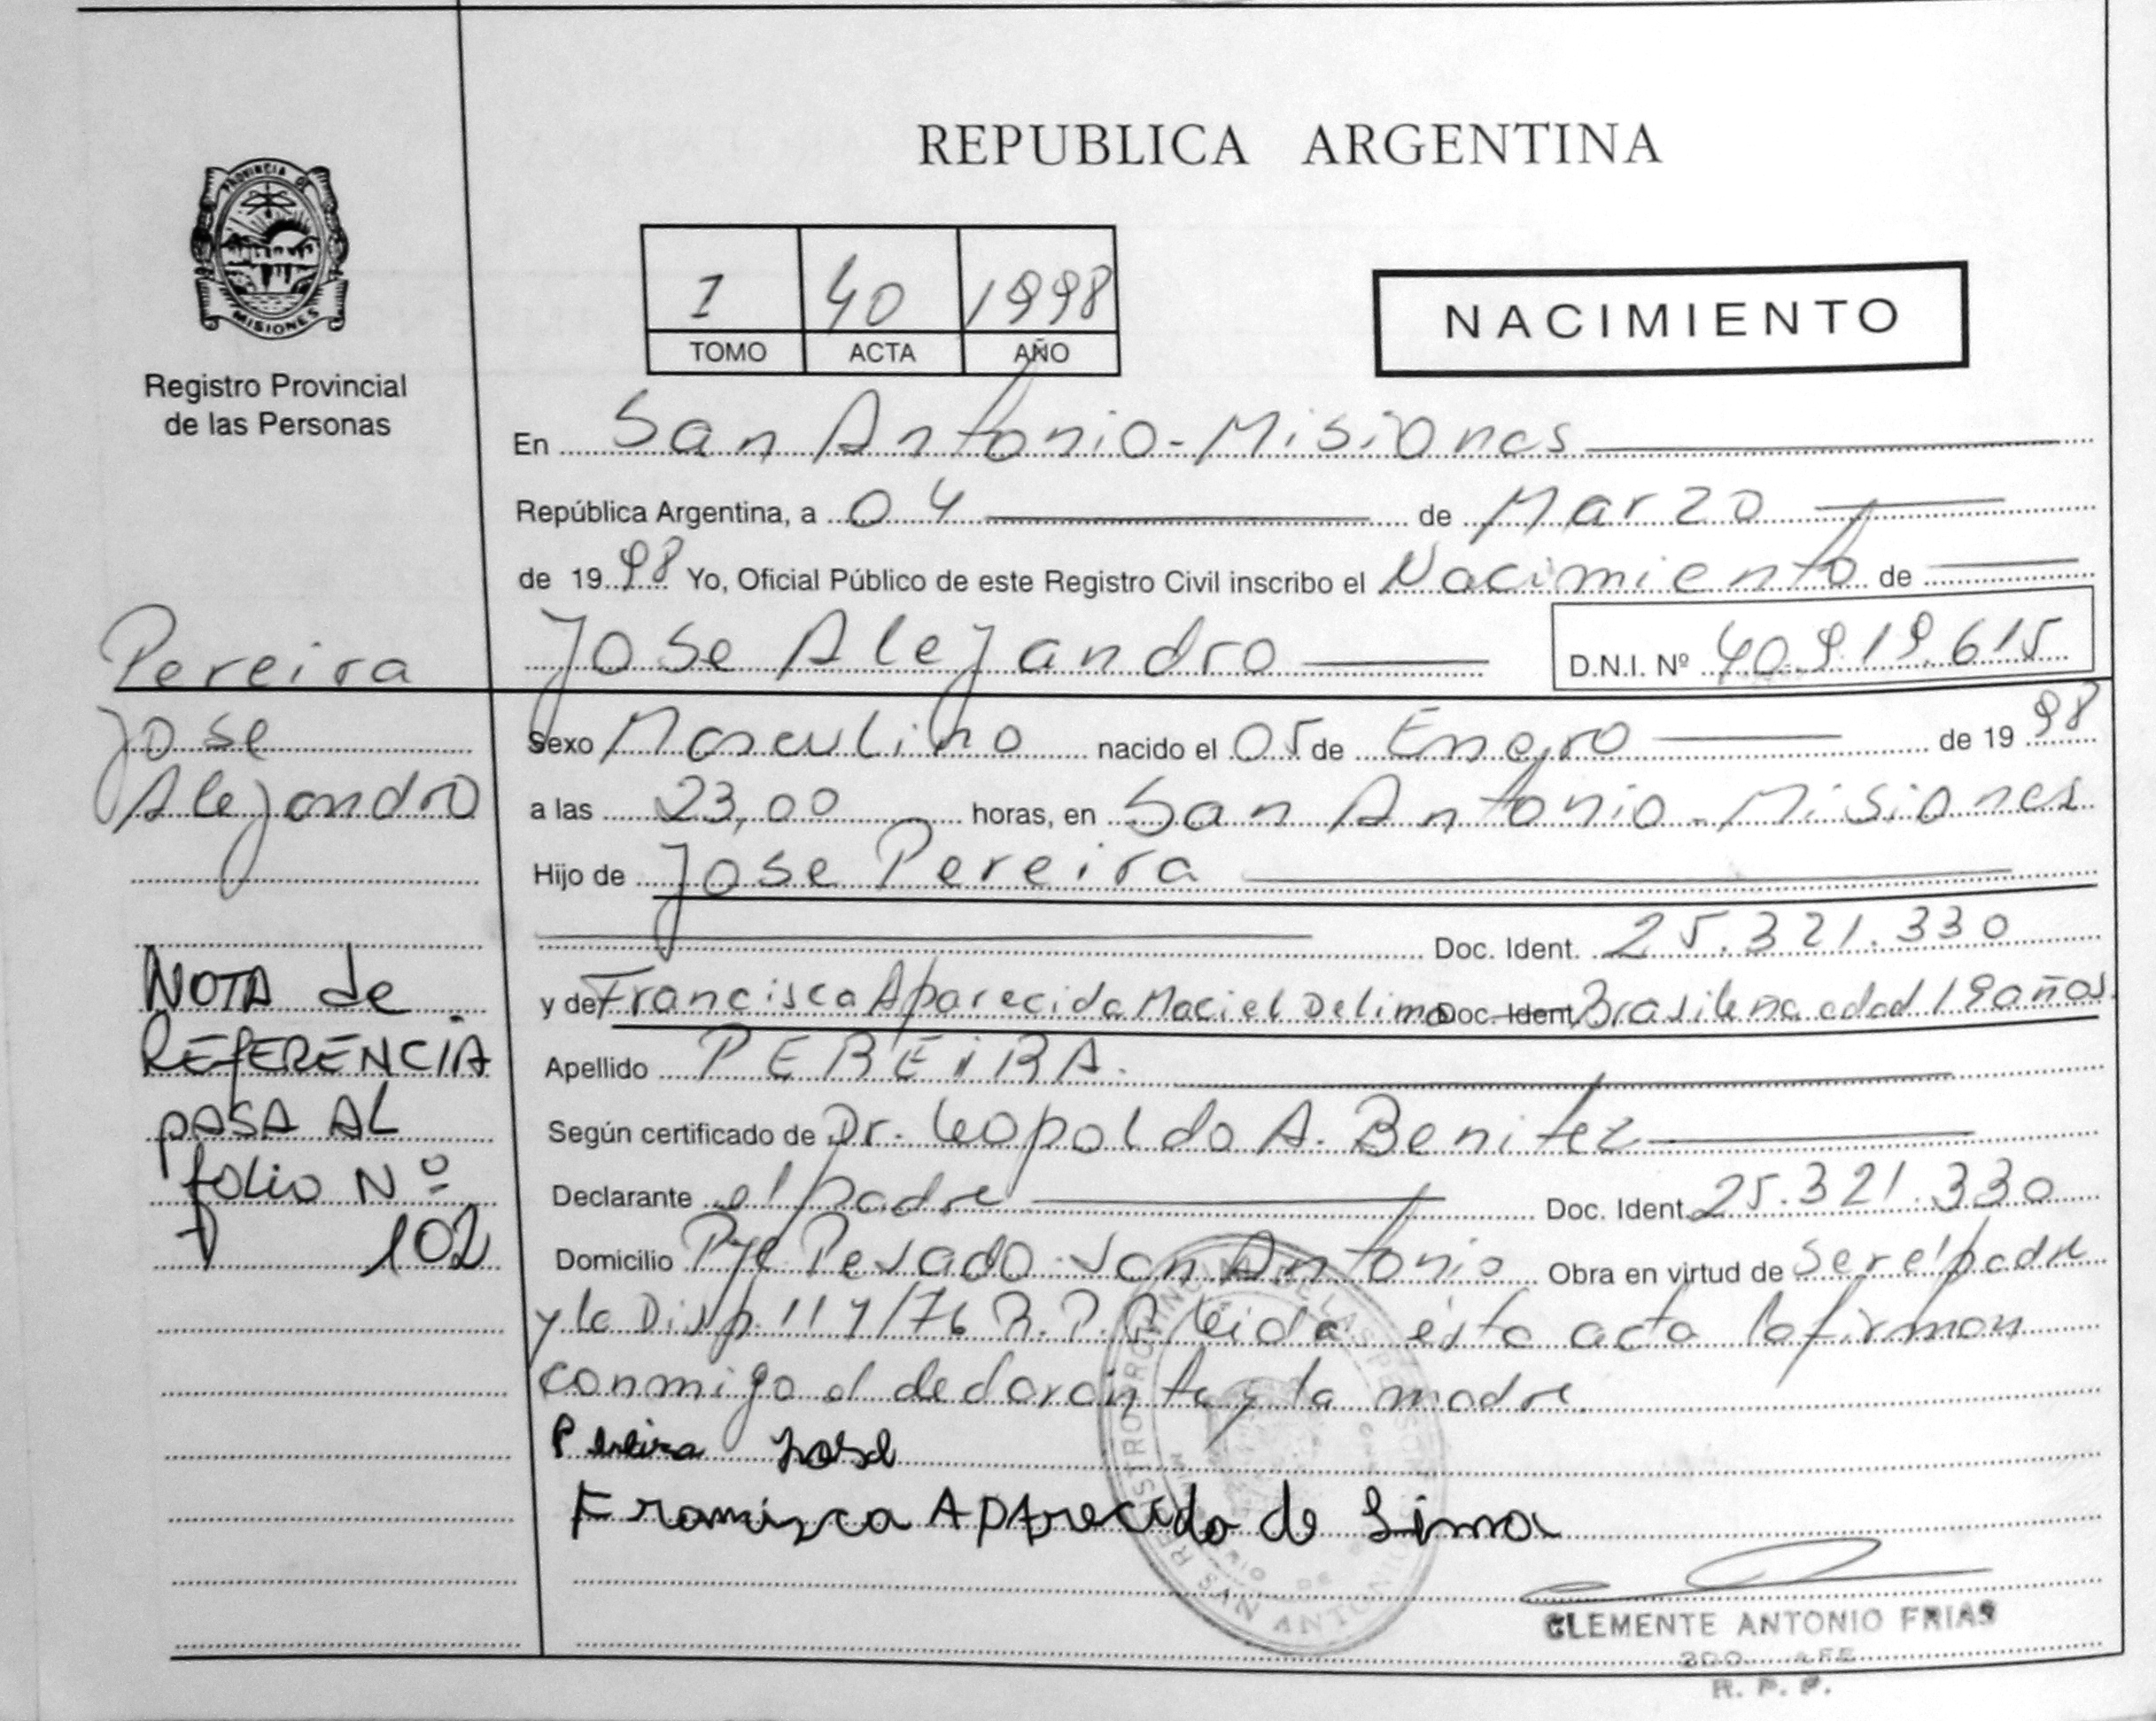 REPUBLICA ARGENTINA
PROVINCIA DE
MISIONES
Registro Provincial
de las Personas
1 40 1998
TOMO ACTA AÑO
NACIMIENTO
En San Antonio - Misiones
República Argentina, a 04 de Marzo
de 1998 Yo, Oficial Público de este Registro Civil inscribo el Nacimiento de
Jose Alejandro D.N.I. Nº 40.919.615
Sexo Masculino nacido el 05 de Enero de 1998
a las 23,00 horas, en San Antonio - Misiones
Hijo de Jose Pereira
Doc. Ident. 25.321.330
y de Francisca Aparecida Maciel De lima Doc. Ident. Brasilena edad 19 años.
Apellido PEREIRA.
Según certificado de Dr. Leopoldo A. Benitez
Declarante el padre Doc. Ident. 25.321.330
Domicilio Pje Pesado San Antonio Obra en virtud de ser el padre
y la Disp. 117/76 R.P.P. Leida esta acta la firman
conmigo el declarante y la madre.
Pereira Jose
Francisca Aparecida de Lima
CLEMENTE ANTONIO FRIAS
R. P. P.
Pereira
Jose
Alejandro
NOTA de
REFERENCIA
PASA AL
folio Nº
102
REGISTRO PROVINCIAL DE LAS PERSONAS
SAN ANTONIO